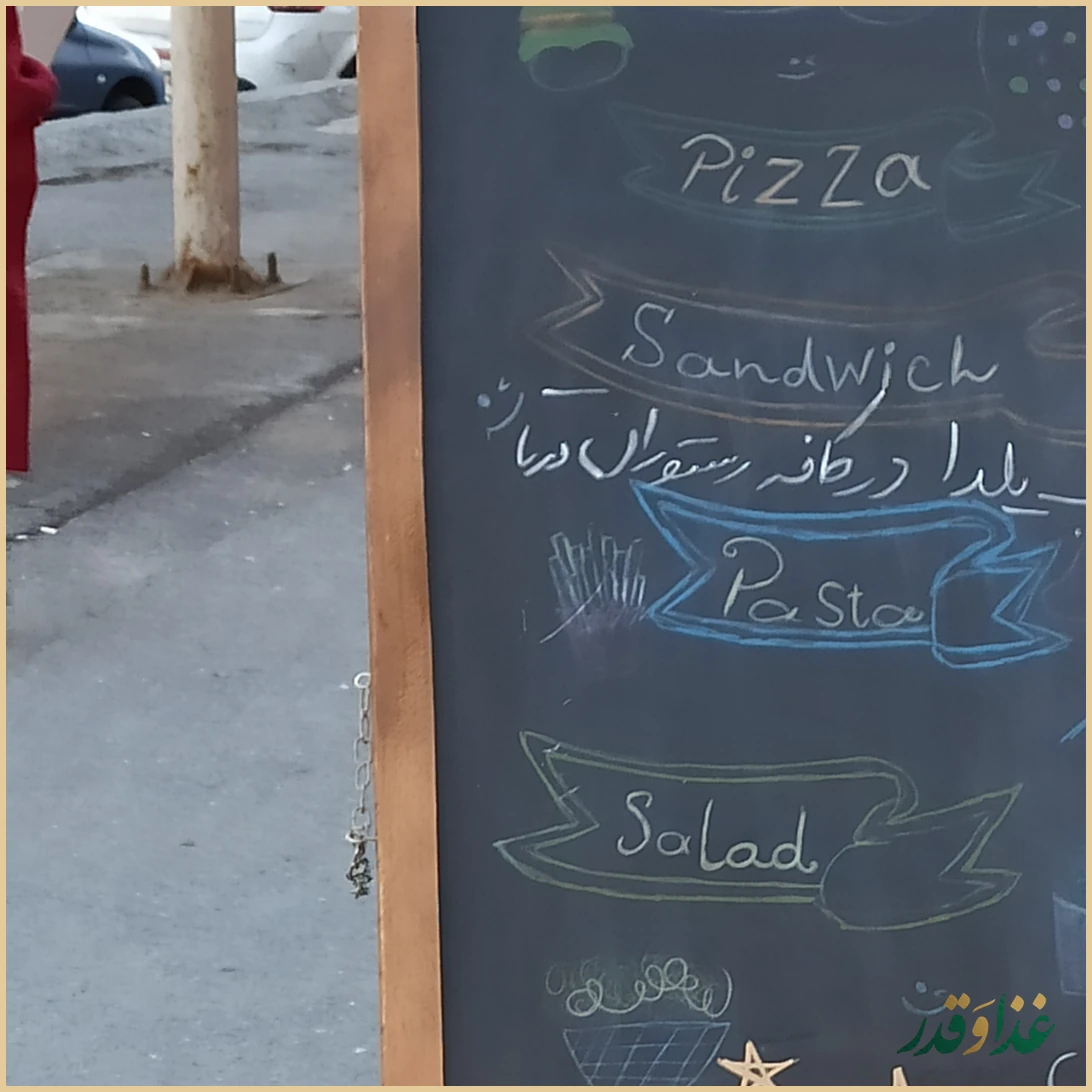 Pizza
Sandwich
یلدا در کافه رستوران دریا
Pasta
Salad
غذا وَ قدر